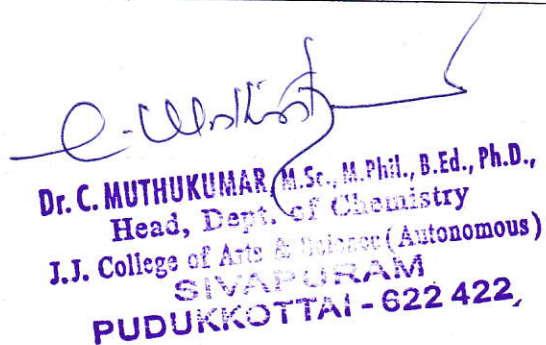 C. Muthukumar
Dr. C. MUTHUKUMAR, M.Sc., M.Phil., B.Ed., Ph.D.,
Head, Dept. of Chemistry
J.J. College of Arts & Science (Autonomous)
SIVAPURAM
PUDUKKOTTAI - 622 422,